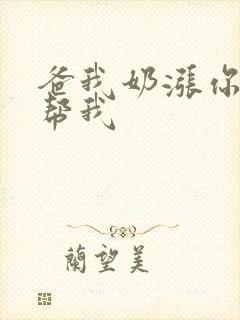 爸我奶漲你
帮我
蘭望美